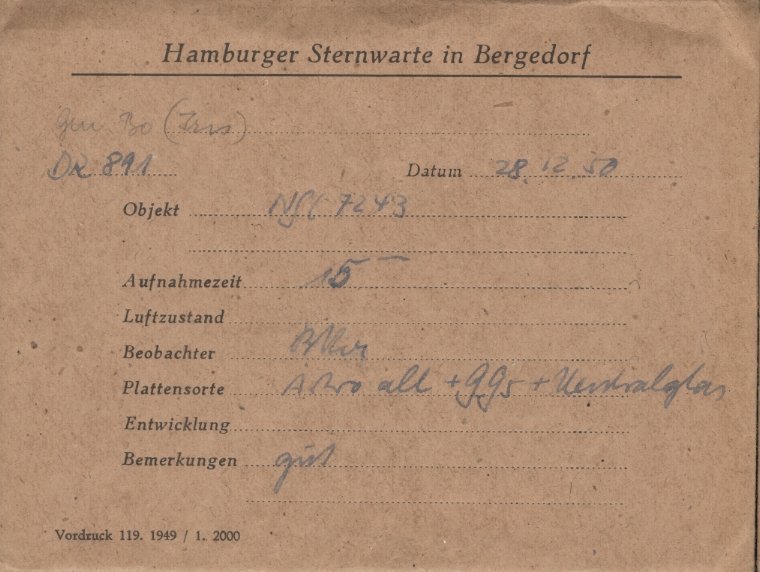 Hamburger Sternwarte in Bergedorf
(Iris)
DR 891 Datum 28.12.50
Objekt NGC 7243
Aufnahmezeit 15
Luftzustand
Beobachter
Plattensorte Astro alt + GG5 + Neutralglas
Entwicklung
Bemerkungen gut
Vordruck 119. 1949 / 1. 2000